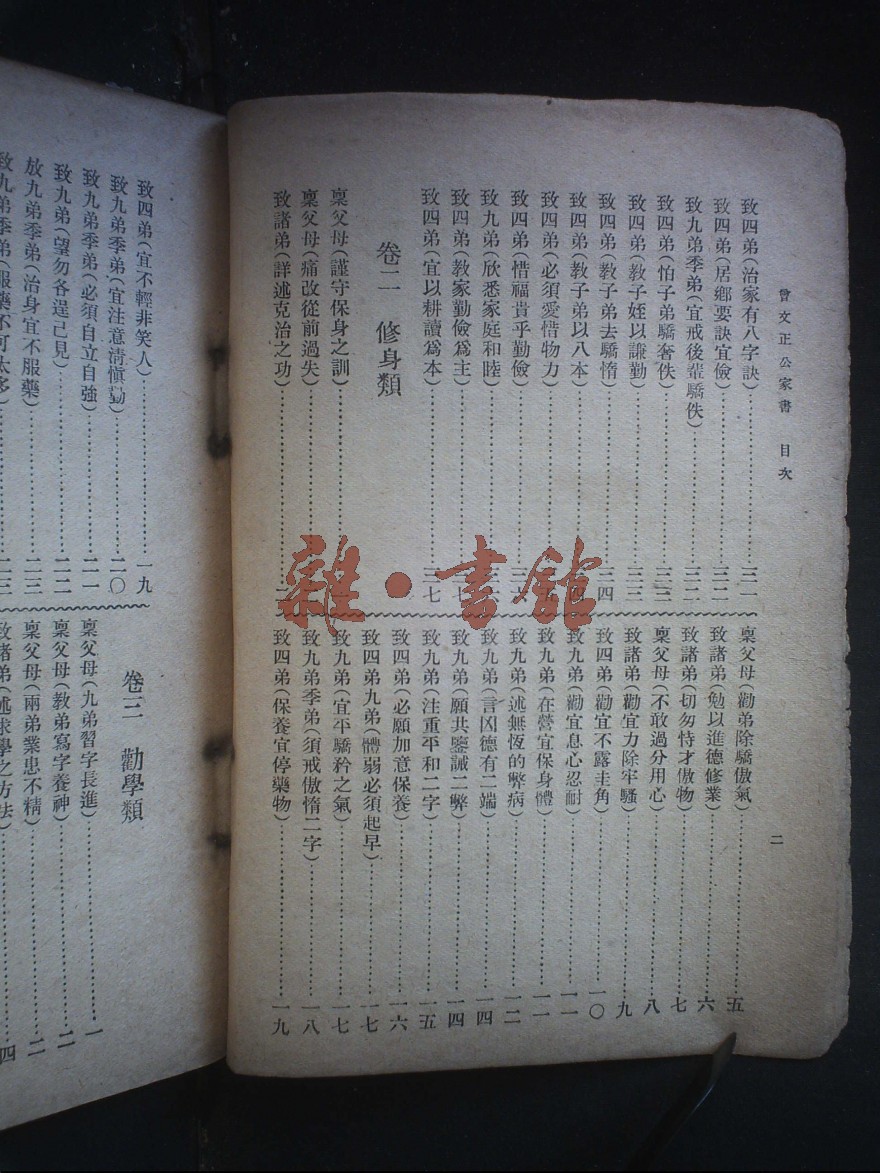 曾文正公家書 目次
二
致四弟（治家有八字訣）……三一
致四弟（居鄉要訣宜儉）……三二
致九弟季弟（宜戒後輩驕佚）……三二
致四弟（怕子弟驕奢佚）……三三
致四弟（教子姪以謙勤）……三三
致四弟（教子弟去驕惰）……三四
致四弟（教子弟以八本）
致四弟（必須愛惜物力）
致四弟（惜福貴乎勤儉）
致九弟（欣悉家庭和睦）
致四弟（教家勤儉爲主）
致四弟（宜以耕讀爲本）……三七
卷二 修身類
稟父母（謹守保身之訓）
稟父母（痛改從前過失）
致諸弟（詳述克治之功）
稟父母（勸弟除驕傲氣）……五
致諸弟（勉以進德修業）……六
致諸弟（切勿恃才傲物）……七
稟父母（不敢過分用心）……八
致諸弟（勸宜力除牢騷）……九
致四弟（勸宜不露圭角）……一〇
致九弟（勸宜息心忍耐）……一一
致九弟（在營宜保身體）……一一
致九弟（述無恆的弊病）……一二
致九弟（言凶德有二端）……一四
致九弟（願共鑒誡二弊）……一四
致九弟（注重平和二字）……一五
致四弟（必願加意保養）……一六
致四弟九弟（體弱必須起早）……一七
致九弟（宜平驕矜之氣）……一七
致九弟季弟（須戒傲惰二字）……一八
致四弟（保養宜停藥物）……一九
致四弟（宜不輕非笑人）……一九
致九弟季弟（宜注意清愼勤）……二〇
致九弟季弟（必須自立自強）……二一
致九弟（望勿各逞己見）……二二
放九弟季弟（治身宜不服藥）……二三
致九弟季弟（服藥不可太多）……二三
卷三 勸學類
稟父母（九弟習字長進）……一
稟父母（教弟寫字養神）……二
稟父母（兩弟業患不精）……二
致諸弟（述求學之方法）……四
雜·書館